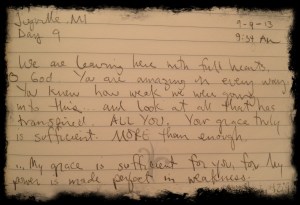 Jugville, MI 9-4-13
Day 9 9:34 AM
We are leaving here with full hearts.
God. You are amazing in every way.
You knew how weak we were going
into this and look at all that has
transpired. ALL YOU. Your grace truly
is sufficient. MORE than enough.
... My grace is sufficient for you, for My
power is made perfect in weakness.